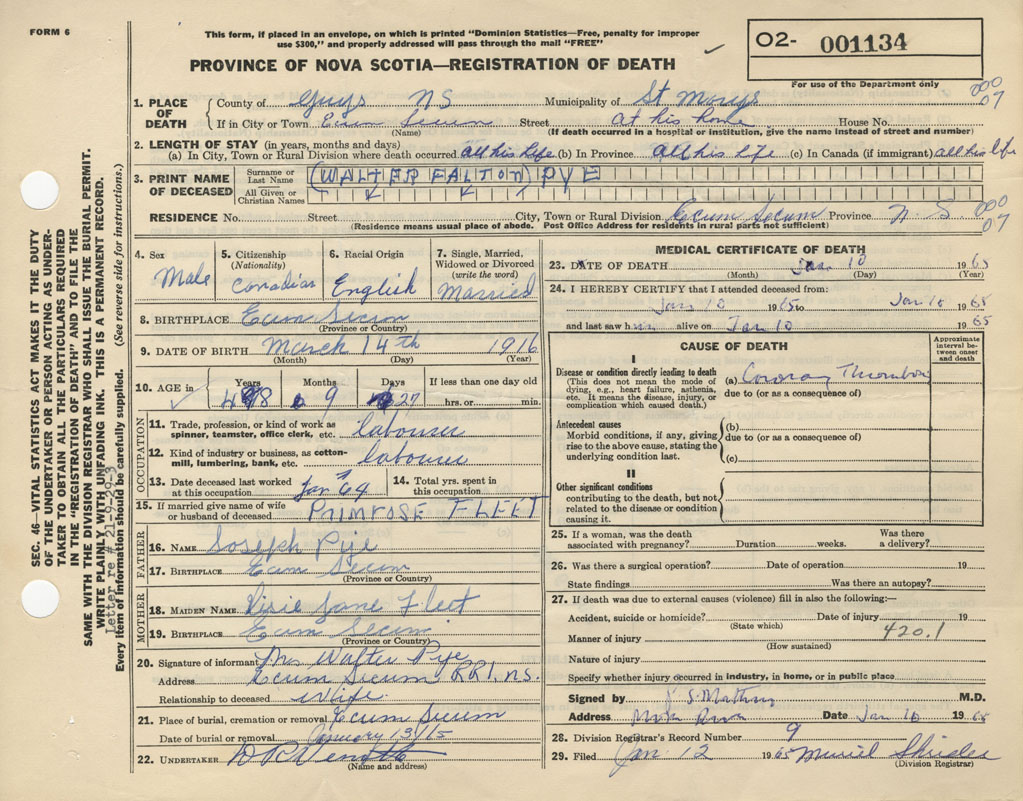 FORM 6
This form, if placed in an envelope, on which is printed "Dominion Statistics—Free, penalty for improper
use $300," and properly addressed will pass through the mail "FREE"
PROVINCE OF NOVA SCOTIA—REGISTRATION OF DEATH
02- 001134
For use of the Department only
000
07
1. PLACE OF DEATH
County of Guys NS Municipality of St Marys
If in City or Town Ecum Secum Street at his home House No.
(Name) (If death occurred in a hospital or institution, give the name instead of street and number)
2. LENGTH OF STAY (in years, months and days)
(a) In City, Town or Rural Division where death occurred all his life (b) In Province all his life (c) In Canada (if immigrant) all his life
3. PRINT NAME OF DECEASED
Surname or Last Name (WALTER FALTON) PYE
All Given or Christian Names
RESIDENCE No. Street City, Town or Rural Division Ecum Secum Province N.S 000
(Residence means usual place of abode. Post Office Address for residents in rural parts not sufficient) 07
4. Sex Male
5. Citizenship (Nationality) Canadian
6. Racial Origin English
7. Single, Married, Widowed or Divorced (write the word) Married
8. BIRTHPLACE Ecum Secum
(Province or Country)
9. DATE OF BIRTH March 14th 1916
(Month) (Day) (Year)
10. AGE in Years 48 Months 9 Days 27 If less than one day
hrs. or min.
OCCUPATION
11. Trade, profession, or kind of work as
spinner, teamster, office clerk, etc. labourer
12. Kind of industry or business, as cotton-
mill, lumbering, bank, etc. labourer
13. Date deceased last worked at this occupation Jan 64
14. Total yrs. spent in this occupation
15. If married give name of wife
or husband of deceased PRIMROSE FLEET
FATHER
16. NAME Joseph Pye
17. BIRTHPLACE Ecum Secum
(Province or Country)
MOTHER
18. MAIDEN NAME Jane Fleet
19. BIRTHPLACE Ecum Secum
(Province or Country)
20. Signature of informant Mrs Walter Pye
Address Ecum Secum RR1. N.S.
Relationship to deceased Wife
21. Place of burial, cremation or removal Ecum Secum
Date of burial or removal January 13/65
22. UNDERTAKER
(Name and address)
MEDICAL CERTIFICATE OF DEATH
23. DATE OF DEATH Jan 10 1965
(Month) (Day) (Year)
24. I HEREBY CERTIFY that I attended deceased from:
Jan 10 1965 to Jan 10 1965
and last saw him alive on Jan 10 1965
CAUSE OF DEATH
Approximate interval between onset and death
I
Disease or condition directly leading to death
(This does not mean the mode of
dying, e.g., heart failure, asthenia,
etc. It means the disease, injury, or
complication which caused death.)
(a) Coronary Thrombosis
due to (or as a consequence of)
Antecedent causes
Morbid conditions, if any, giving
rise to the above cause, stating the
underlying condition last.
(b)
due to (or as a consequence of)
(c)
II
Other significant conditions
contributing to the death, but not
related to the disease or condition
causing it.
25. If a woman, was the death Was there
associated with pregnancy? Duration weeks. a delivery?
26. Was there a surgical operation? Date of operation 19
State findings Was there an autopsy?
27. If death was due to external causes (violence) fill in also the following:—
Accident, suicide or homicide? Date of injury 19
(State which)
Manner of injury 420.1
(How sustained)
Nature of injury
Specify whether injury occurred in industry, in home, or in public place
Signed by M.D.
Address Date Jan 10 1965
28. Division Registrar's Record Number 9
29. Filed Jan. 12 1965 Muriel
(Division Registrar)
SEC. 46—VITAL STATISTICS ACT MAKES IT THE DUTY
OF THE UNDERTAKER OR PERSON ACTING AS UNDER-
TAKER TO OBTAIN ALL THE PARTICULARS REQUIRED
IN THE "REGISTRATION OF DEATH" AND TO FILE THE
SAME WITH THE DIVISION REGISTRAR WHO SHALL ISSUE THE BURIAL PERMIT.
WRITE PLAINLY WITH UNFADING INK. THIS IS A PERMANENT RECORD.
Letter re # 21-9-29-3
Every item of information should be carefully supplied. (See reverse side for instructions.)